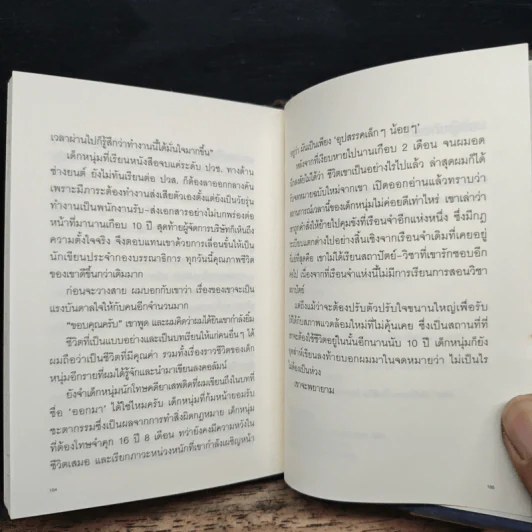 เวลาผ่านไปก็รู้สึกว่าทำงานนี้ได้มั่นใจมากขึ้น"
เด็กหนุ่มที่เรียนหนังสือจบแค่ระดับ ปวช. ทางด้าน
ช่างยนต์ ยังไม่ทันเรียนต่อ ปวส. ก็ต้องลาออกกลางคัน
เพราะมีภาระต้องทำงานส่งเสียตัวเองตั้งแต่ยังเป็นวัยรุ่น
ทำงานเป็นพนักงานรับ-ส่งเอกสารอย่างไม่บกพร่องต่อ
หน้าที่มานานเกือบ 10 ปี สุดท้ายผู้จัดการบริษัทก็เห็นถึง
ความตั้งใจจริง จึงตอบแทนเขาด้วยการเลื่อนขั้นให้เป็น
นักเขียนประจำกองบรรณาธิการ ทุกวันนี้คุณภาพชีวิต
ของเขาดีขึ้นกว่าเดิมมาก
ก่อนจะวางสาย ผมบอกกับเขาว่า เรื่องของเขาจะเป็น
แรงบันดาลใจให้กับคนอีกจำนวนมาก
"ขอบคุณครับ" เขาพูด และผมคิดว่าผมได้ยินเขากำลังยิ้ม
ชีวิตที่เป็นแบบอย่าง และเป็นบทเรียนให้แก่คนอื่นๆ ได้
ผมถือว่าเป็นชีวิตที่มีคุณค่า รวมทั้งเรื่องราวชีวิตของเด็ก
หนุ่มอีกรายที่ผมได้รู้จักและนำมาเขียนลงคอลัมน์
ยังจำเด็กหนุ่มนักโทษคดียาเสพติดที่ผมเขียนถึงในบทที่
ชื่อ 'ออกมา' ได้ใช่ไหมครับ เด็กหนุ่มที่ก้มหน้ายอมรับ
ชะตากรรมซึ่งเป็นผลจากการทำสิ่งผิดกฎหมาย เด็กหนุ่ม
ที่ต้องโทษจำคุก 16 ปี 8 เดือน ทว่ายังคงมีความหวังใน
ชีวิตเสมอ และเรียกภาวะหน่วงหนักที่เขากำลังเผชิญหน้า
194
อยู่ว่า มันเป็นเพียง 'อุปสรรคเล็กๆ น้อยๆ'
หลังจากที่เงียบหายไปนานเกือบ 2 เดือน จนผมอด
ไม่ได้ ชีวิตเขาเป็นอย่างไรไปแล้ว ล่าสุดผมก็ได้
จดหมายฉบับใหม่จากเขา เปิดออกอ่านแล้วทราบว่า
เวลานี้ของเด็กหนุ่มไม่ค่อยดีเท่าไหร่ เขาเล่าว่า
คำสั่งให้ย้ายไปคุมขังที่เรือนจำอีกแห่งหนึ่ง ซึ่งมีกฎ
ระเบียบแตกต่างไปอย่างสิ้นเชิงจากเรือนจำเดิมที่เคยอยู่
ที่สุดคือ เขาไม่ได้เรียนสถาปัตย์-วิชาที่เขารักชอบอีก
ต่อไป เนื่องจากที่เรือนจำแห่งนี้ไม่มีการเรียนการสอนวิชา
สถาปัตย์
แต่ถึงแม้ว่าจะต้องปรับตัวปรับใจขนานใหญ่เพื่อรับ
ให้ได้กับสภาพแวดล้อมใหม่ที่ไม่คุ้นเคย ซึ่งเป็นสถานที่ที่
เขาจะต้องใช้ชีวิตอยู่ในนั้นอีกนานนับ 10 ปี เด็กหนุ่มก็ยัง
เขียนลงท้ายบอกผมมาในจดหมายว่า ไม่เป็นไร
ไม่ต้องเป็นห่วง
เขาจะพยายาม
195